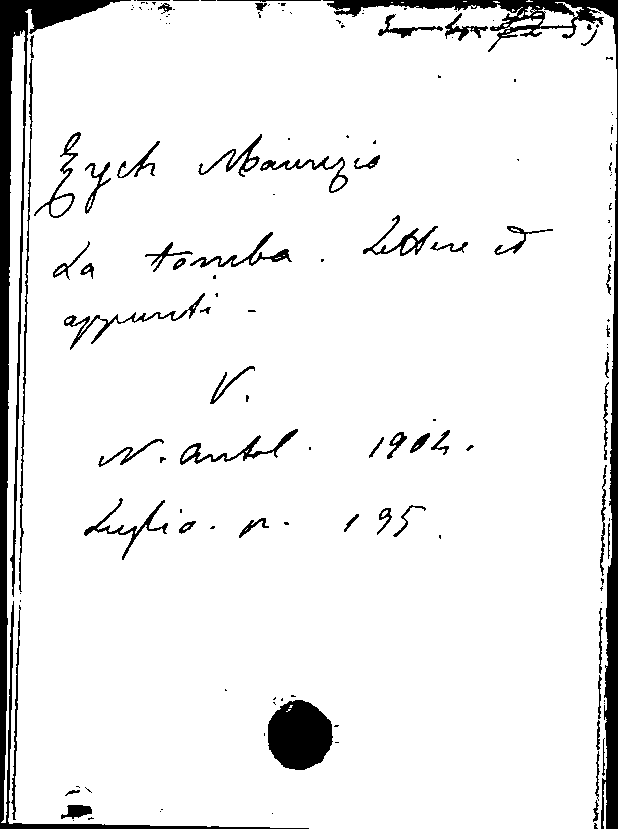 Erych Maurizio
La tomba. Lettere ed
appunti -
V.
N. Antol. 1904.
Luglio. p. 195.